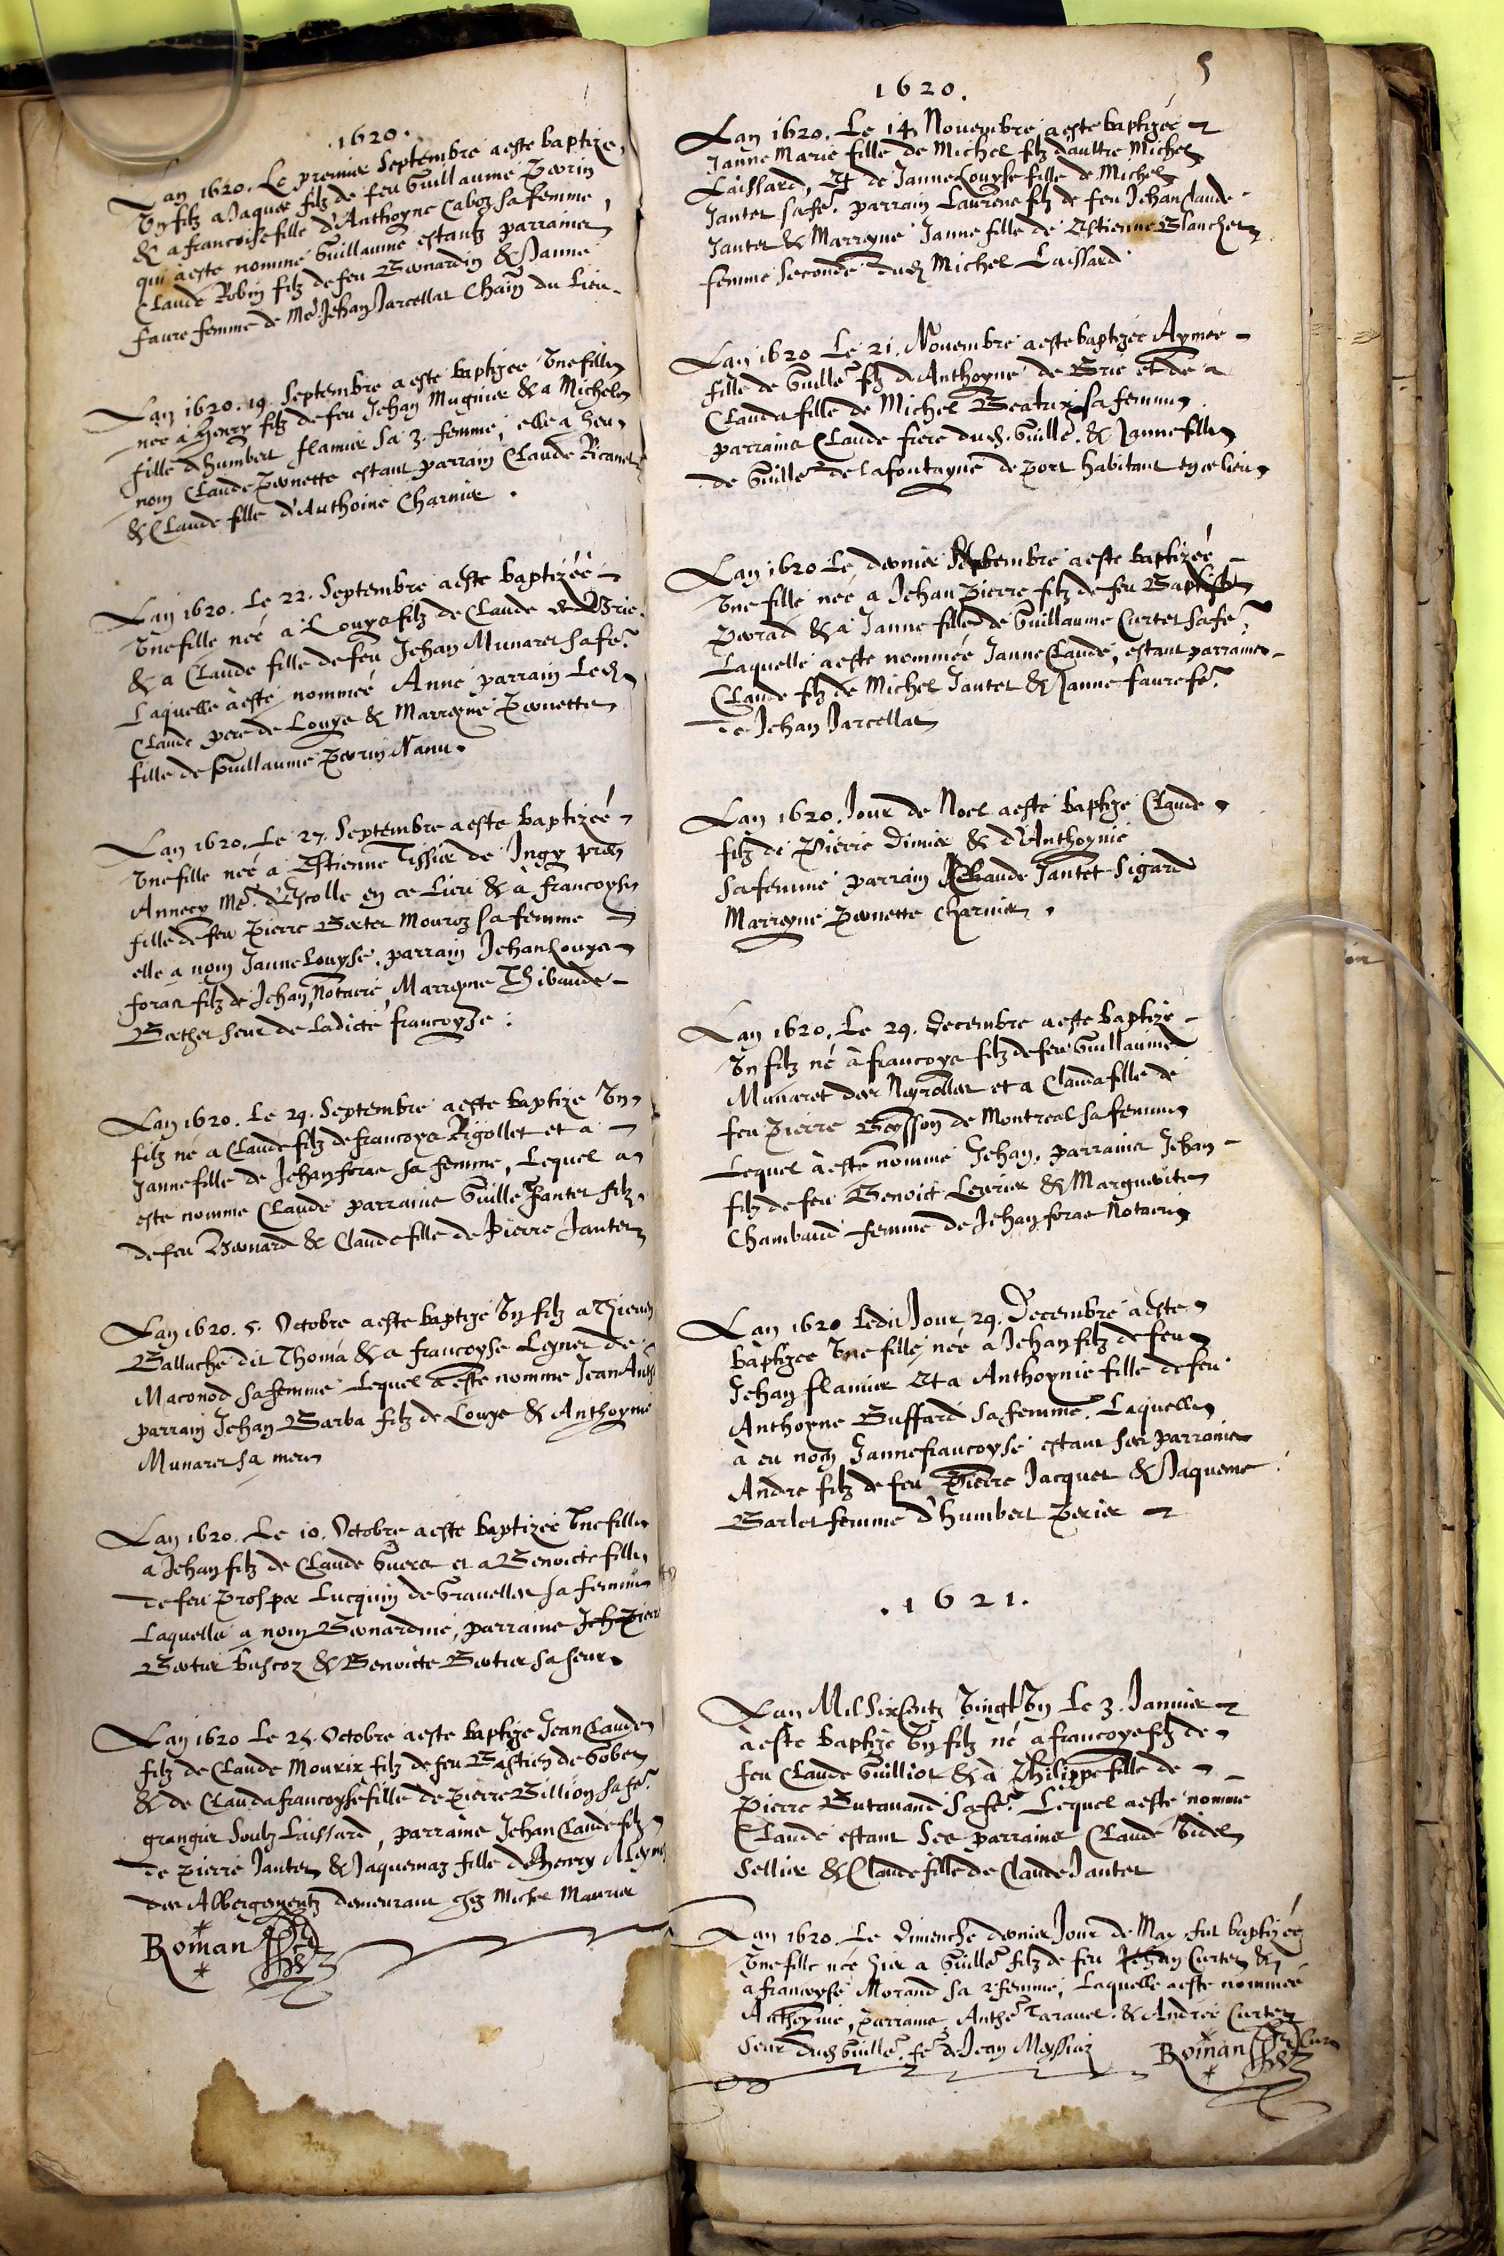 .1620.
Lan 1620. Le premier Septembre a este baptize
Un filz a Jaques filz de feu Guillaume Perrin
& a francoise fille d'Anthoyne Caboz sa femme,
qui a este nomme Guillaume estantz parrains
Claude Robin filz de feu Bernardin & Janne
faure femme de Me Jehan Jarcellat Chain du Lieu.
Lan 1620. 19. Septembre a este baptizee Une fille
nee a Henry filz de feu Jehan Mugnier & a Michele
fille d'humbert flamier sa 3. femme, elle a heu
nom Claude Pernette estant parrain Claude Ricanet
& Claude fille d'Anthoine Charnier.
Lan 1620. Le 22. Septembre a este baptizéé
Une fille néé a Louys filz de Claude de Brie
& a Claude fille de feu Jehan Munaret sa fe.
Laquelle a este nommeé Anne parrain Led.
Claude pere de Louys & Marreyne Pernette
fille de Guillaume Perrin Nanu.
Lan 1620. Le 27. Septembre a este baptizéé
Une fille néé a Estienne Tissier de Ingy pres
Annecy Me. d'Escolle en ce Lieu & à francoyse
fille de feu Pierre Berter Mouroz sa femme
elle a nom Janne Louyse. parrain Jehan Louys
foras filz de Jehan, Notaere, Marreyne Thibaude
Berther seur de ladicte francoyse:
Lan 1620. Le 29. Septembre a este baptize Un
filz ne a Claude filz de francoys Rigollet et a
Janne fille de Jehan foras sa femme, Lequel a
este nomme Claude parrains Guille Janter filz
de feu Bernard & Claude fille de Pierre Janter
Lan 1620. 5. Octobre a este baptize Un filz a Thieven
Balluche dit Thomá & a francoyse Leyner de
Maconod sa femme Lequel a este nomme Jean Anth
parrain Jehan Barba filz de Louys & Anthoyne
Munaret sa mere
Lan 1620. Le 10. Octobre a este baptizeé Une fille
a Jehan filz de Claude Guerr et a Benoicte fille
de feu Prosper Lucquin de Gravelles sa femme
Laquelle a nom Bernardine, parrains Jeh Pierre
Bertier buscoz & Benoicte Bertier sa seur.
Lan 1620 Le 25. Octobre a este baptize Jean Claude
filz de Claude Mourix filz de feu Bastien de Gobet
& de Clauda francoyse fille de Pierre Billion sa fe.
grangier soubz Laissard, parrains Jehan Claude filz
de Pierre Janter & Jaquemaz fille de Henry Meyn
des Albergementz demeurant chez Michel Maurier
Roman
5
1620.
Lan 1620. Le 14 Novembre, a este baptizéé
Janne Marie fille de Michel filz daultre Michel
Laissard, Et de Janne Louyse fille de Michel
Janter sa fe. parrain Laurens filz de feu Jehan Claude
Janter & Marreyne Janne fille de Estienne Blanchet
femme seconde dud. Michel Laissard
Lan 1620 Le 21. Novembre a este baptizee Aymeé
fille de Guille filz de Anthoyne de Brie et de
Clauda fille de Michel Beatrix sa femme
parrains Claude frere dud. Guille. & Janne fille
de Guille de Lafontayne de port habitant en ce lieu
Lan 1620 Le dernier Septembre a este baptizéé
Une fille néé a Jehan Pierre filz de feu Baptiste
Perrad & a Janne fille de Guillaume Curtet sa fe.
Laquelle a este nomméé Janne Claude, estant parrains
Claude filz de Michel Janter & Janne faure fe.
de Jehan Jarcellat
Lan 1620. Jour de Noel a este baptize Claude
filz de Pierre Dimier & d'Anthoynie
sa femme parrain Claude Jantet Sigard
Marreyne Pernette Charnier.
Lan 1620. Le 29. Decembre a este baptize
Un filz né à francoys filz de feu Guillaume
Munaret des Neyrolles et a Clauda fille de
feu Pierre Besson de Montreal sa femme
Lequel a este nomme Jehan. parrains Jehan
filz de feu Benoict Levrier & Marguerite
Chambaud femme de Jehan foras Notaere
Lan 1620 Ledit Jour 29. Decembre a este
baptizee Une fille, néé a Jehan filz de feu
Jehan flamier Et a Anthoynie fille de feu
Anthoyne Buffard sa femme. Laquelle
à eu nom Janne francoyse estant ses parrains
Andre filz de feu Pierre Jacquet & Jaqueme
Barlet femme d'humbert Perier
.1621.
Lan Mil Six Centz Vingt Un Le 3. Janvier
à este baptizé Un filz né a francoys filz de
feu Claude Guilliot & à Philippe fille de
Pierre Butavand sa fe. Lequel a este nomme
Claude estant ses parrains Claude Videl
Sellier & Claude fille de Claude Janter
Lan 1620. Le Dimenche dernier Jour de May fut baptizéé
Une fille néé hier a Guille filz de feu Jehan Curtet &
a francoyse Morand sa 2 femme, Laquelle a este nomméé
Anthoynie, parrains Anthe Taravel. & Andréé Curtet
Seur dud. Guille. fe de Jean Meyssiaz
Roman Curé